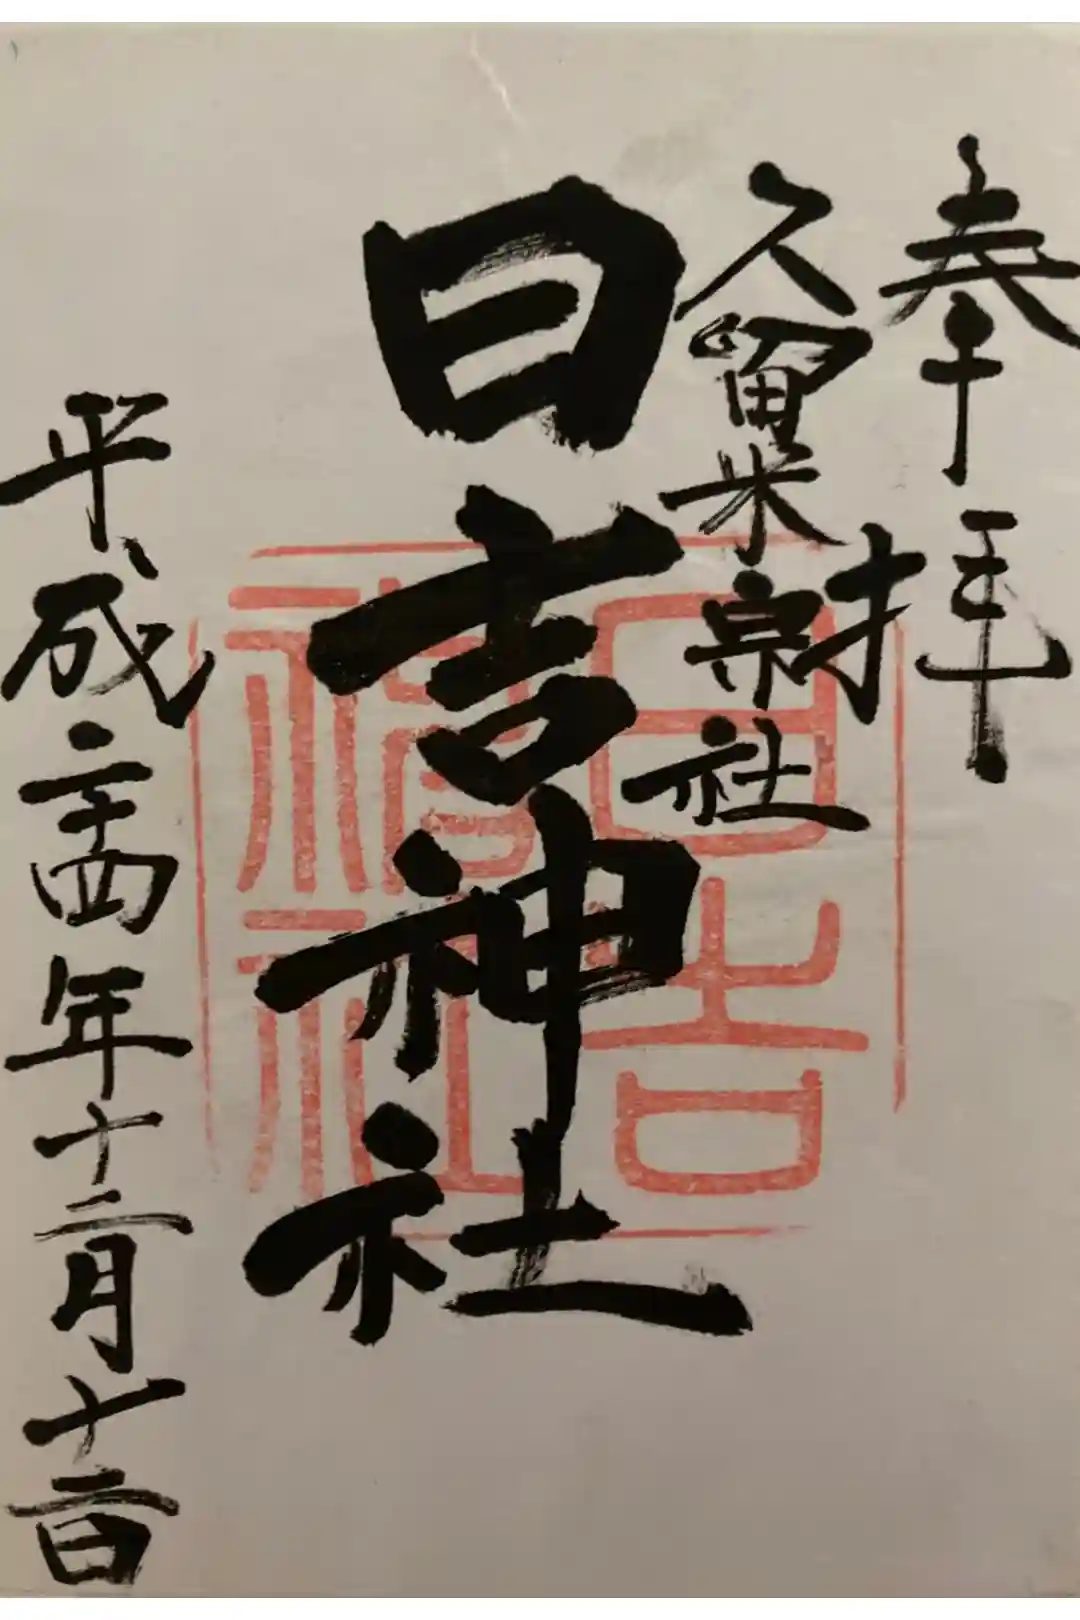 奉拝
久留米宗社
日吉神社
平成二十四年十二月十二日
日吉
神社